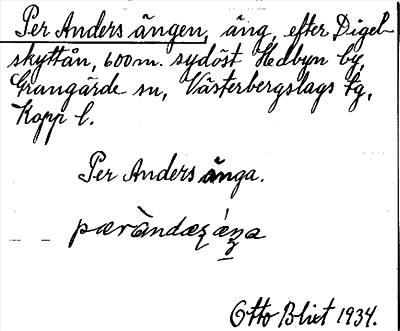 Per Anders ängen, äng, efter Digel-
skyttån, 600 m. sydöst Hedbyn by,
Grangärde sn, Västerbergslags tg,
Kopp l.
Per Anders änga.
pæràndæʂ ǽŋa
Otto Blixt 1934.